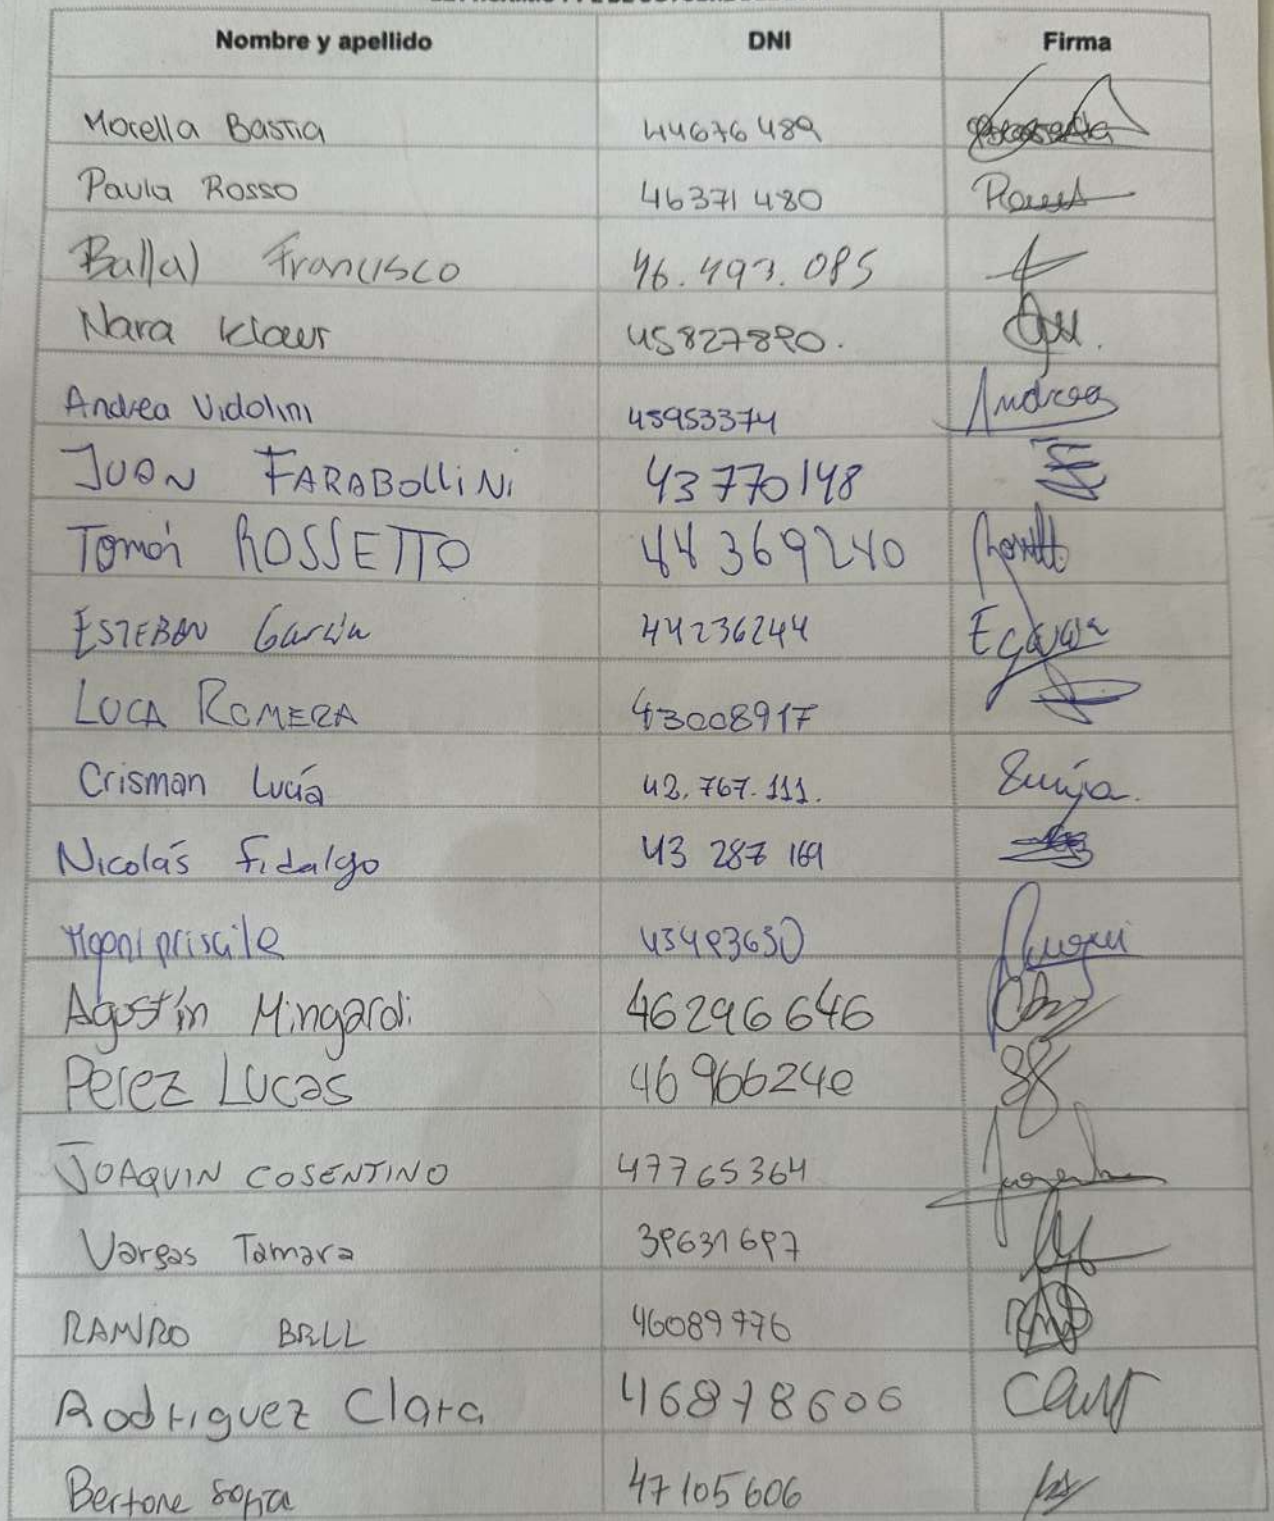 Nombre y apellido DNI Firma
Morella Bastia 44676489
Paula Rosso 46371480
Ballal Francisco 46.493.085
Nara Klaur 45827890.
Andrea Vidolini 45953374 Andrea
JUAN FARABOLLINI 43770148
Tomás ROSSETTO 44369240
ESTEBAN García 44236244 EGarcía
LUCA ROMERA 43008917
Crisman Lucía 42.767.111.
Nicolás Fidalgo 43 287 169
priscila 43493650
Agostín Mingardi 46296646
Perez Lucas 46966240
JOAQUIN COSENTINO 47765364
Vargas Tamara 39631697
RAMIRO BRLL 46089776
Rodriguez Clara 46878606
Bertone Sofia 47105606